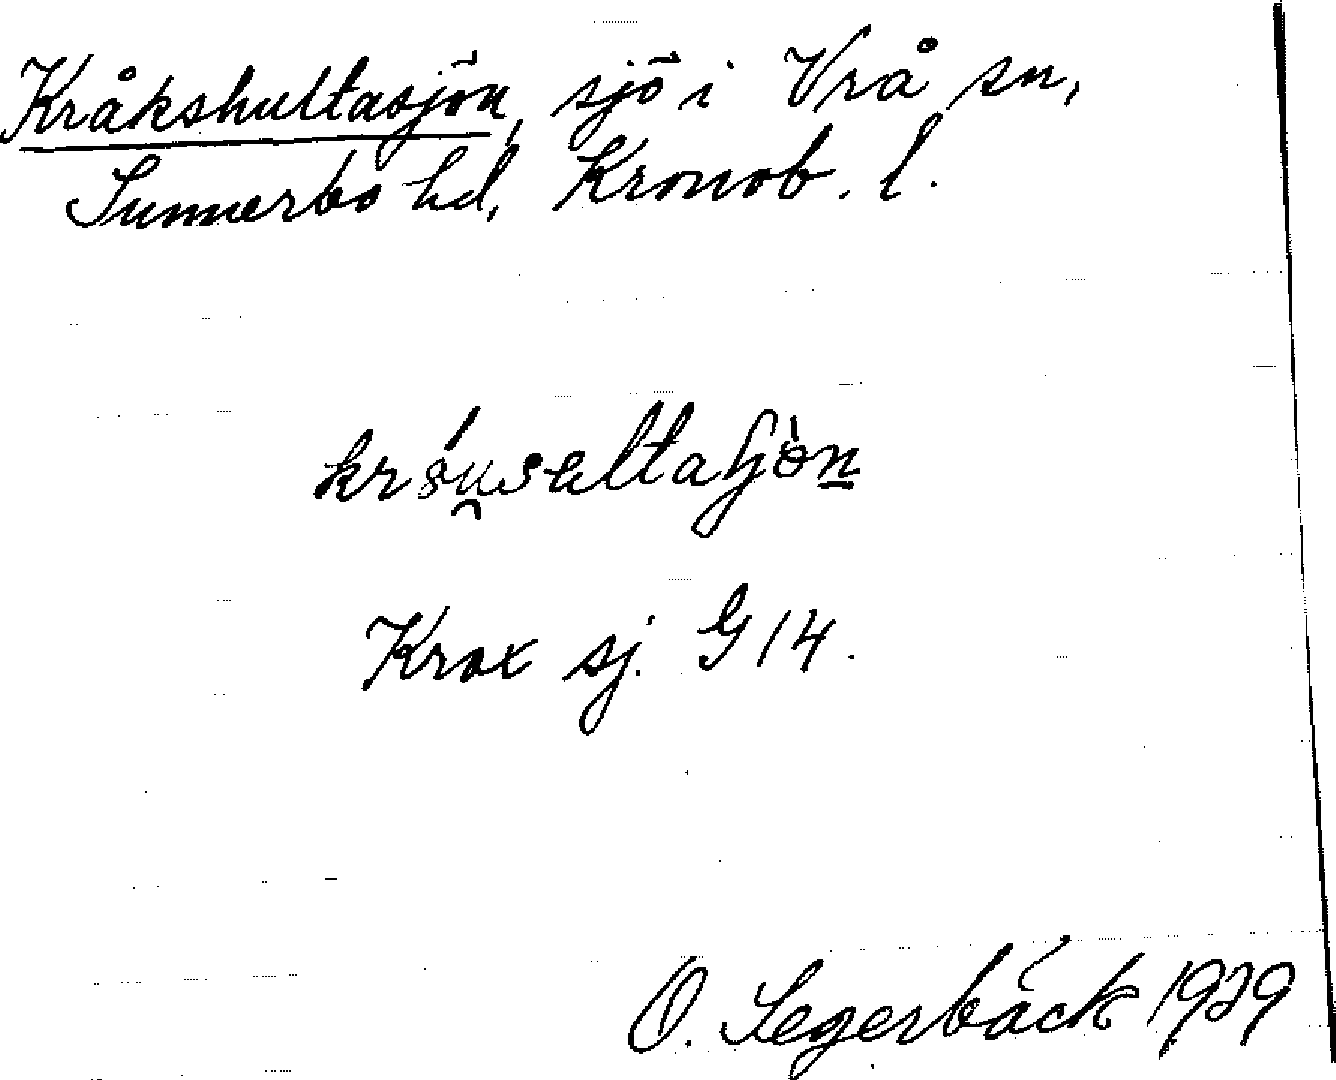 Kråkshultasjön, sjö i Vrå sn,
Sunnerbo hd, Kronob. l.
Krax sj. G 14.
O. Segerbäck 1929